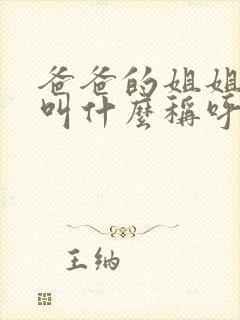 爸爸的姐姐
叫什麼稱呼
王納